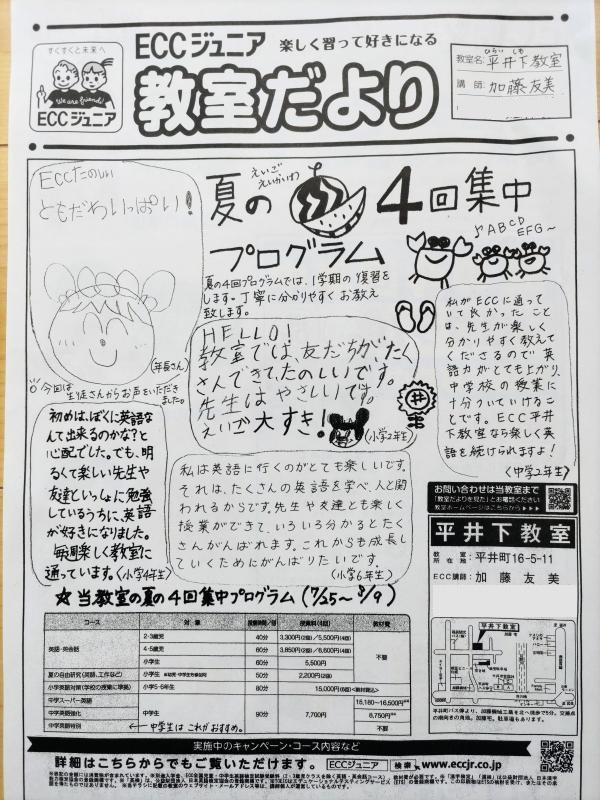 すくすくと未来へ
We are friends!
ECCジュニア
ECCジュニア 楽しく習って好きになる
教室だより
ひらい しも
教室名:平井下教室
講師:加藤友美
ECCたのしい
ともだちいっぱい!
(年長さん)
えいご
えいかいわ
夏の 4回集中
プログラム
♪ABCD
EFG〜
夏の4回プログラムでは、1学期の復習を
します。丁寧に分かりやすくお教え
致します。
今回は生徒さんからお声をいただきました。
HELLO!
教室では、友だちが、たく
さんできて、たのしいです。
先生はやさしいです。
えいご大すき!
(小学2年生)
私がECCに通って
いて良かったこと
は、先生が楽しく
分かりやすく教えて
くださるので英
語力がとても上がり、
中学校の授業に
十分ついていけるこ
とです。ECC平井
下教室なら楽しく英
語を続けられますよ!
(中学2年生)
初めは、ぼくに英語な
んて出来るのかな?と
心配でした。でも、明
るくて楽しい先生や
友達といっしょに勉強
しているうちに、英語
が好きになりました。
毎週楽しく教室に
通っています。(小学4年生)
私は英語に行くのがとても楽しいです。
それは、たくさんの英語を学べ、人と関
われるからです。先生や友達とも楽しく
授業ができて、いろいろ分かるとたく
さんがんばれます。これからも成長し
ていくためにがんばりたいです。
(小学6年生)
お問い合わせは当教室まで
「教室だよりを見た」とお電話ください
教室ホームページはこちらから
平井下教室
教室所在地:平井町16-5-11
ECC講師:加藤友美
平井下教室
☆当教室の夏の4回集中プログラム(7/25〜8/9)
コース 対象 授業時間/回 授業料(4回) 教材費
英語・英会話 2・3歳児 40分 3,300円(2回)/5,500円(4回) 不要
4・5歳児 60分 3,850円(2回)/6,600円(4回)
小学生 60分 5,500円
夏の自由研究(英語、工作など) 小学生 50分 2,200円(2回)
小学英語対策(学校の授業に準拠) 小学5・6年生 80分 15,000円(8回)
中学スーパー英語 中学生 90分 7,700円 16,180〜16,500円
中学英語強化 6,750円
中学英語特別 不要
中学生はこれがおすすめ。
実施中のキャンペーン・コース内容など
詳細はこちらからでもご覧いただけます。 ECCジュニア 検索 www.eccjr.co.jp